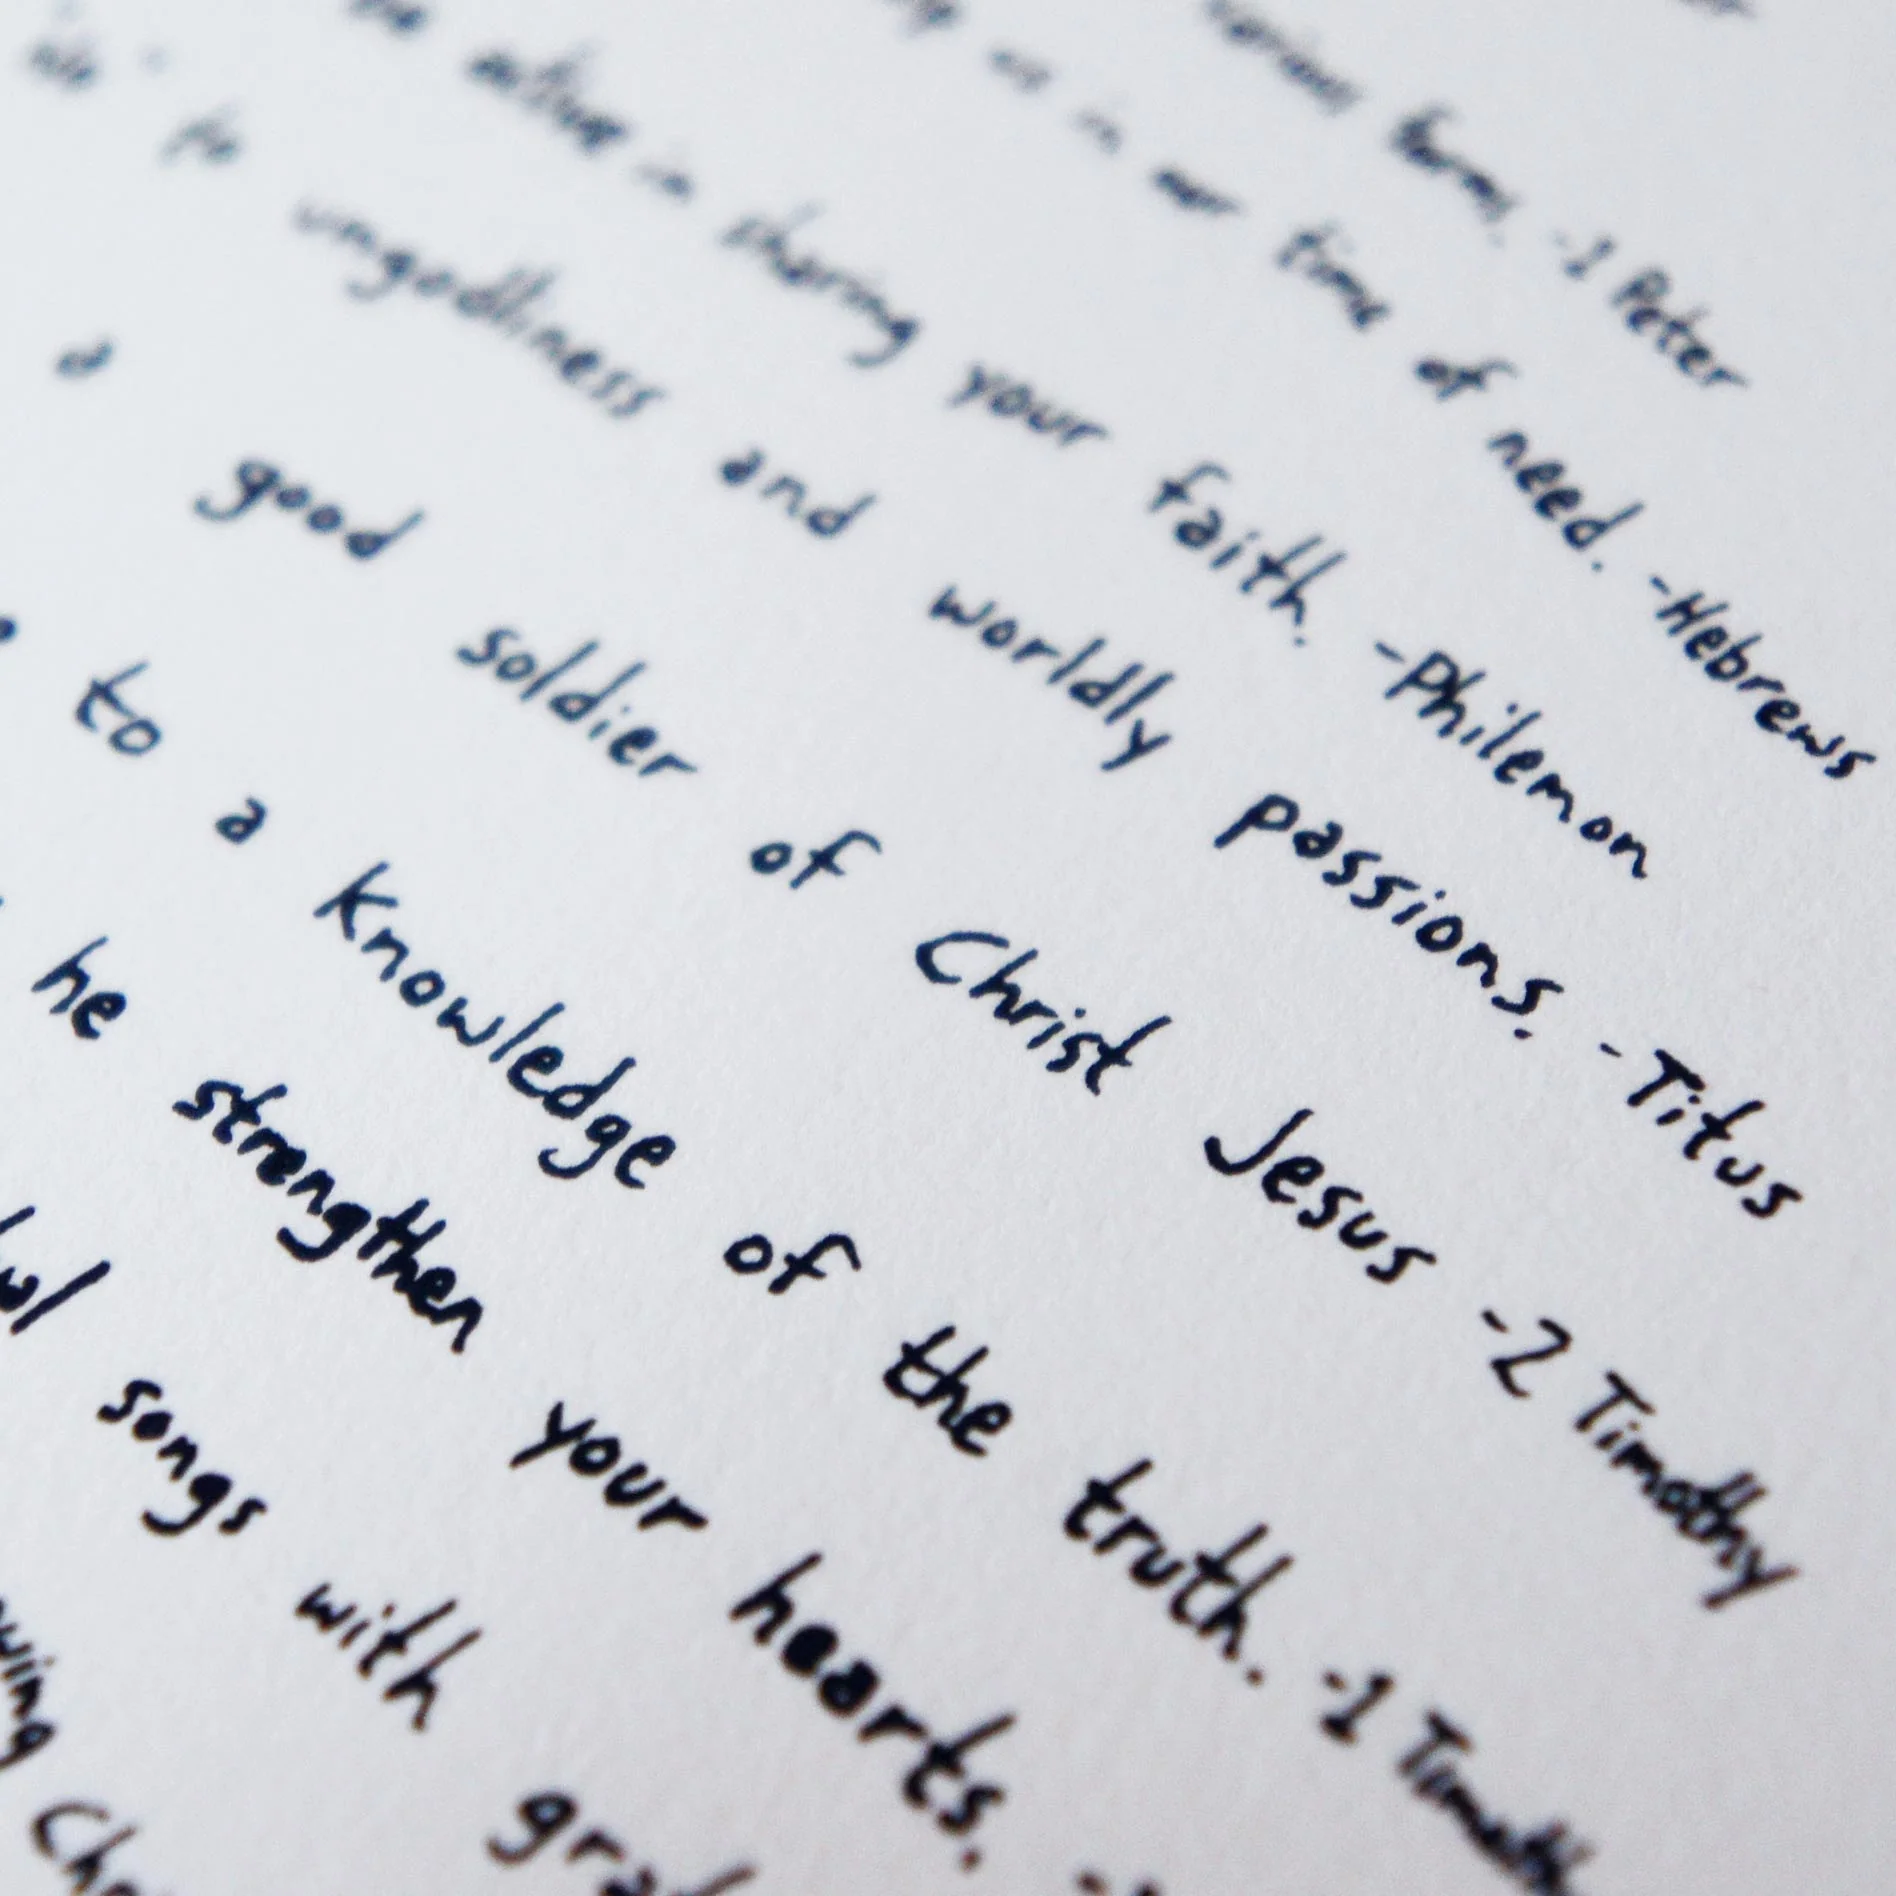 various forms. -1 Peter
in our time of need. -Hebrews
active in sharing your faith. -Philemon
to ungodliness and worldly passions. -Titus
a good soldier of Christ Jesus -2 Timothy
to a knowledge of the truth. -1 Timoth
he strengthen your hearts.
songs with